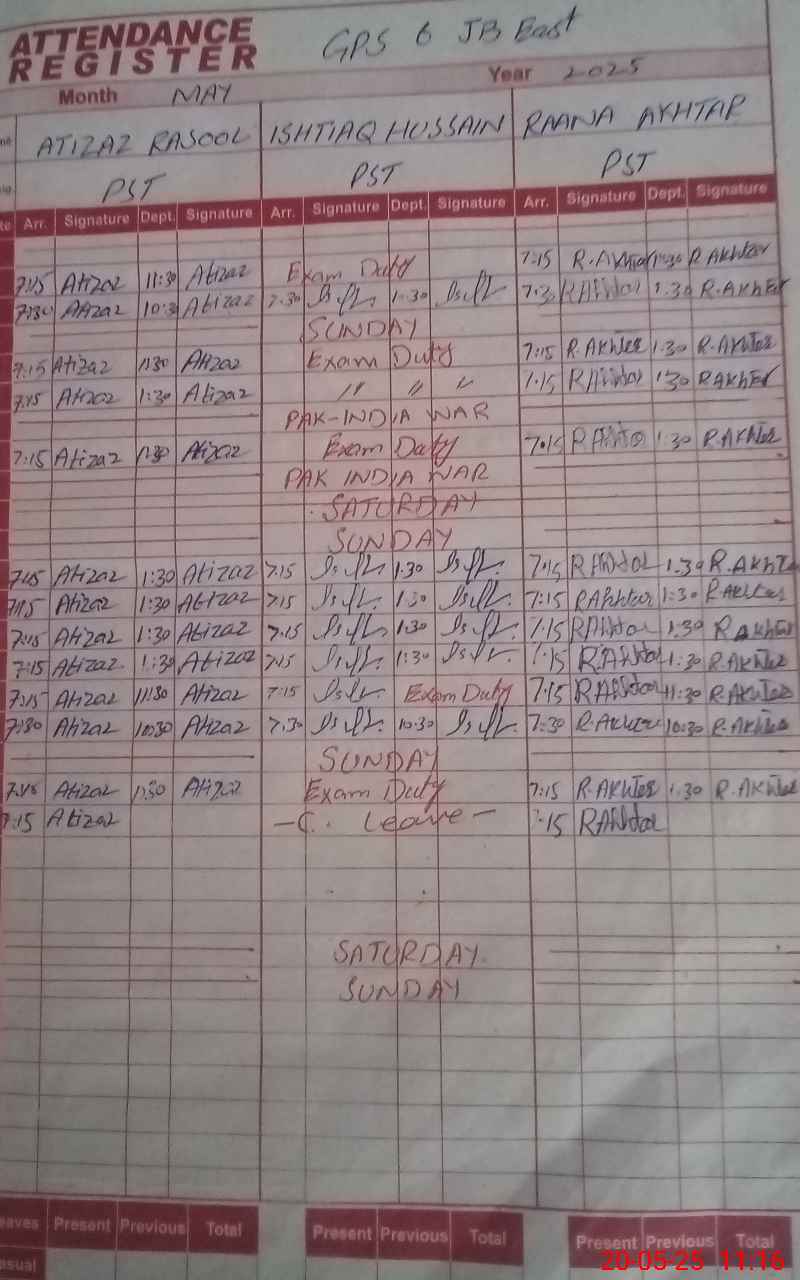 ATTENDANCE GPS 6 JB East
REGISTER
Month MAY Year 2025
ATIZAZ RASOOL ISHTIAQ HUSSAIN RAANA AKHTAR
PST PST PST
Arr. Signature Dept. Signature Arr. Signature Dept. Signature Arr. Signature Dept. Signature
7:15 Atizaz 11:30 Atizaz Exam Duty 7:15 R. Akhtar R Akhter
7:30 Atizaz 10:3 Atizaz 7.30 1.30 7:3 1.30 R.AKHER
SUNDAY
7:15 Atizaz 1:30 Atizaz Exam Duty 7:15 R. AKHTER 1:30 R. AKHTER
7:15 Atizaz 1:30 Atizaz " " " 7:15 1:30 R AKHER
PAK-INDIA WAR
7:15 Atizaz 1:30 Atizaz Exam Duty 7:15 1:30 R.AKHTER
PAK INDIA WAR
SATURDAY
SUNDAY
7:15 Atizaz 1:30 Atizaz 7:15 1.30 7:15 1.30 R. AKHTE
7:15 Atizaz 1:30 Atizaz 7:15 1:30 7:15 R Akhtar 1:30 R AKHTER
7:15 Atizaz 1:30 Atizaz 7:15 1:30 7:15 1:30 R AKHTER
7:15 Atizaz 1:30 Atizaz 7:15 1:30 7:15 1:30 R. AKHTER
7:15 Atizaz 11:30 Atizaz 7:15 Exam Duty 7:15 11:30 R. AKHTER
7:30 Atizaz 10:30 Atizaz 7.30 10:30 7:30 R. AKHTER 10:30 R. AKHTER
SUNDAY
7:15 Atizaz 1:30 Atizaz Exam Duty 7:15 R. AKHTER 1.30 R. AKHTER
7:15 Atizaz -C. Leave- 7:15
SATURDAY
SUNDAY
eaves Present Previous Total Present Previous Total Present Previous Total
asual 20-05-25 11:16